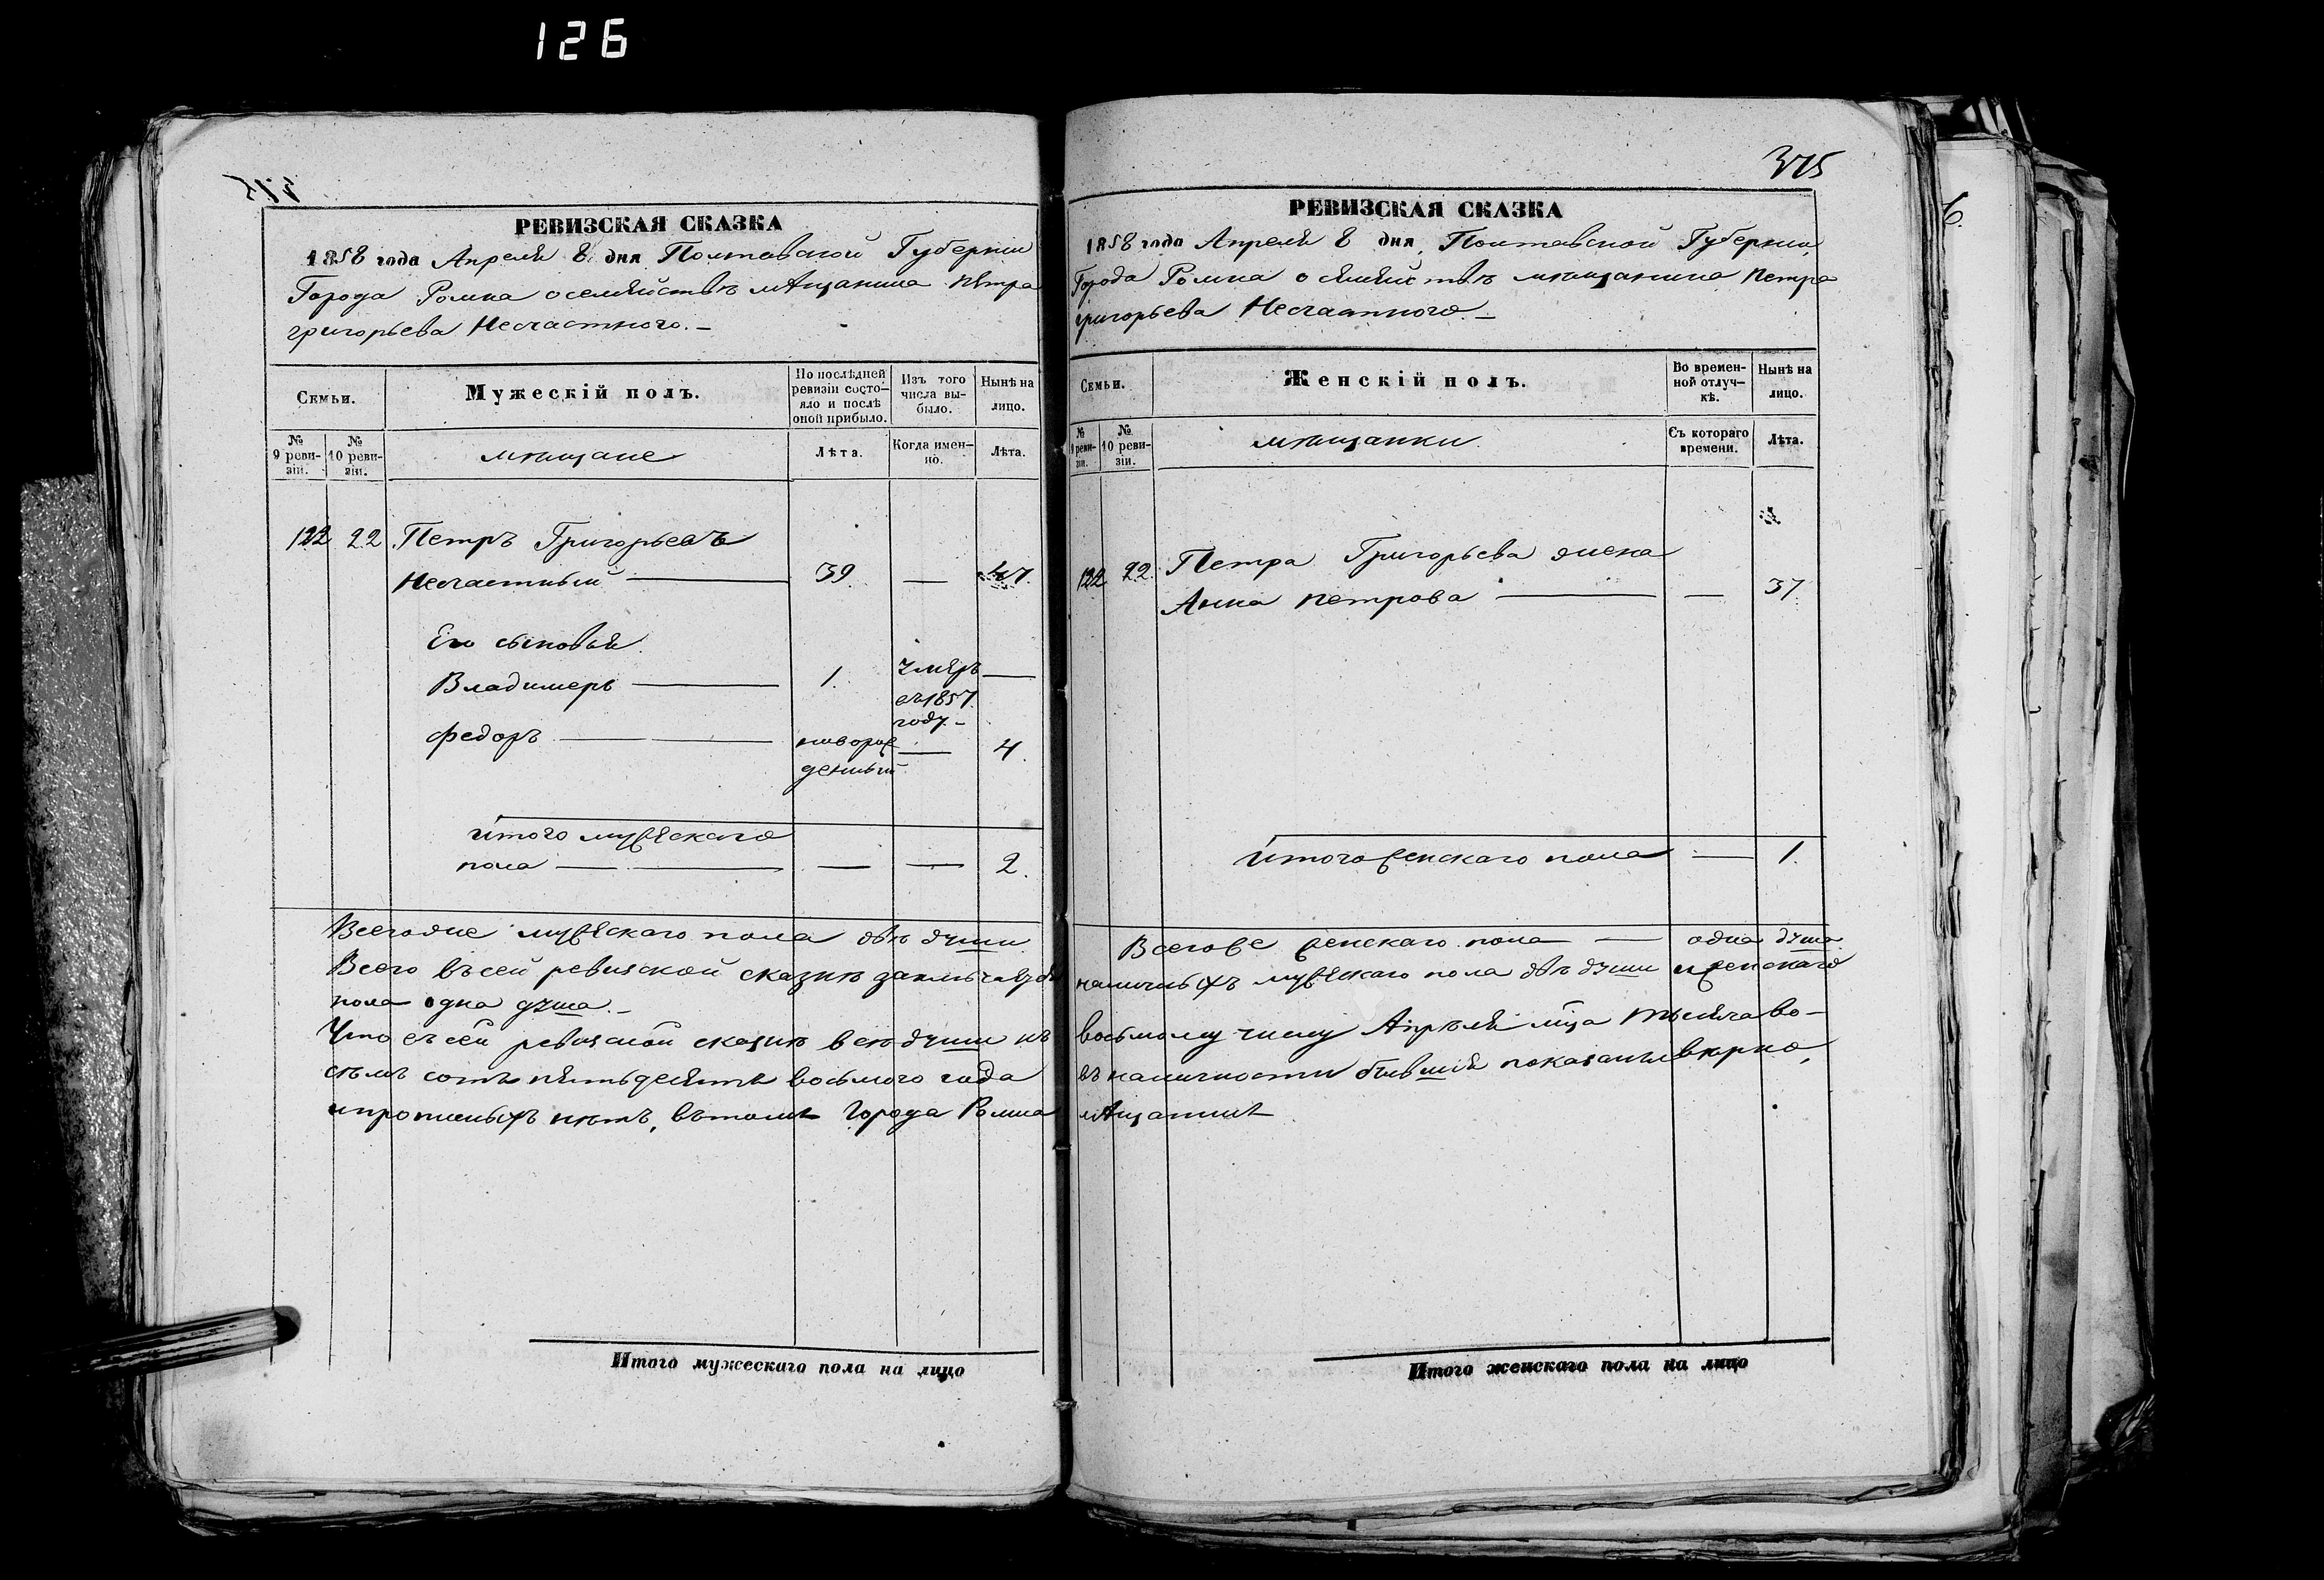 126
375
РЕВИЗСКАЯ СКАЗКА
1858 года Апреля 8 дня Полтавской Губернiи
Города Ромна о семействѣ мѣщанина Петра
григорьева Несчастного. —
Семьи.
Мужескій полъ.
По послѣдней
ревизіи состо-
яло и послѣ
оной прибыло.
Изъ того
числа вы-
было.
Нынѣ на
лицо.
№
9 реви-
зіи.
№
10 реви-
зіи.
мѣщане
Лѣта.
Когда имен-
но.
Лѣта.
122 22 Петръ Григорьевъ
Несчастный — 39. — 47.
Его сыновья.
Владимеръ — 1. умеръ —
въ 1857.
году. —
Федоръ — новорож — 4.
денный
Итого мужескаго
пола — — — 2.
Всегоже мужескаго пола двѣ души
Всего въ сей ревизской сказкѣ
пола одна душа. —
Что въ сей ревизской сказкѣ все души къ
сѣмъ сотъ пятьдесятъ восьмого года
и прописныхъ нѣтъ, въ томъ Города Ромна
Итого мужескаго пола на лицо
375
РЕВИЗСКАЯ СКАЗКА
1858 года Апреля 8 дня, Полтавской Губернiи,
Города Ромна о семействѣ мѣщанина Петра
григорьева Несчастного. —
Семьи.
Женскій полъ.
Во времен-
ной отлуч-
кѣ.
Нынѣ на
лицо.
№
9 реви-
зіи.
№
10 реви-
зіи.
мѣщанки
Съ котораго
времени.
Лѣта.
122 22. Петра Григорьева жена
Анна Петрова — — 37.
Итого женскаго пола — 1.
Всегоже женскаго пола — одна душа.
наличныхъ мужескаго пола двѣ души и женскаго
восьмому числу Апрѣля мца тысяча во-
въ наличности бывшiя показаны вѣрно,
мѣщанинъ
Итого женскаго пола на лицо